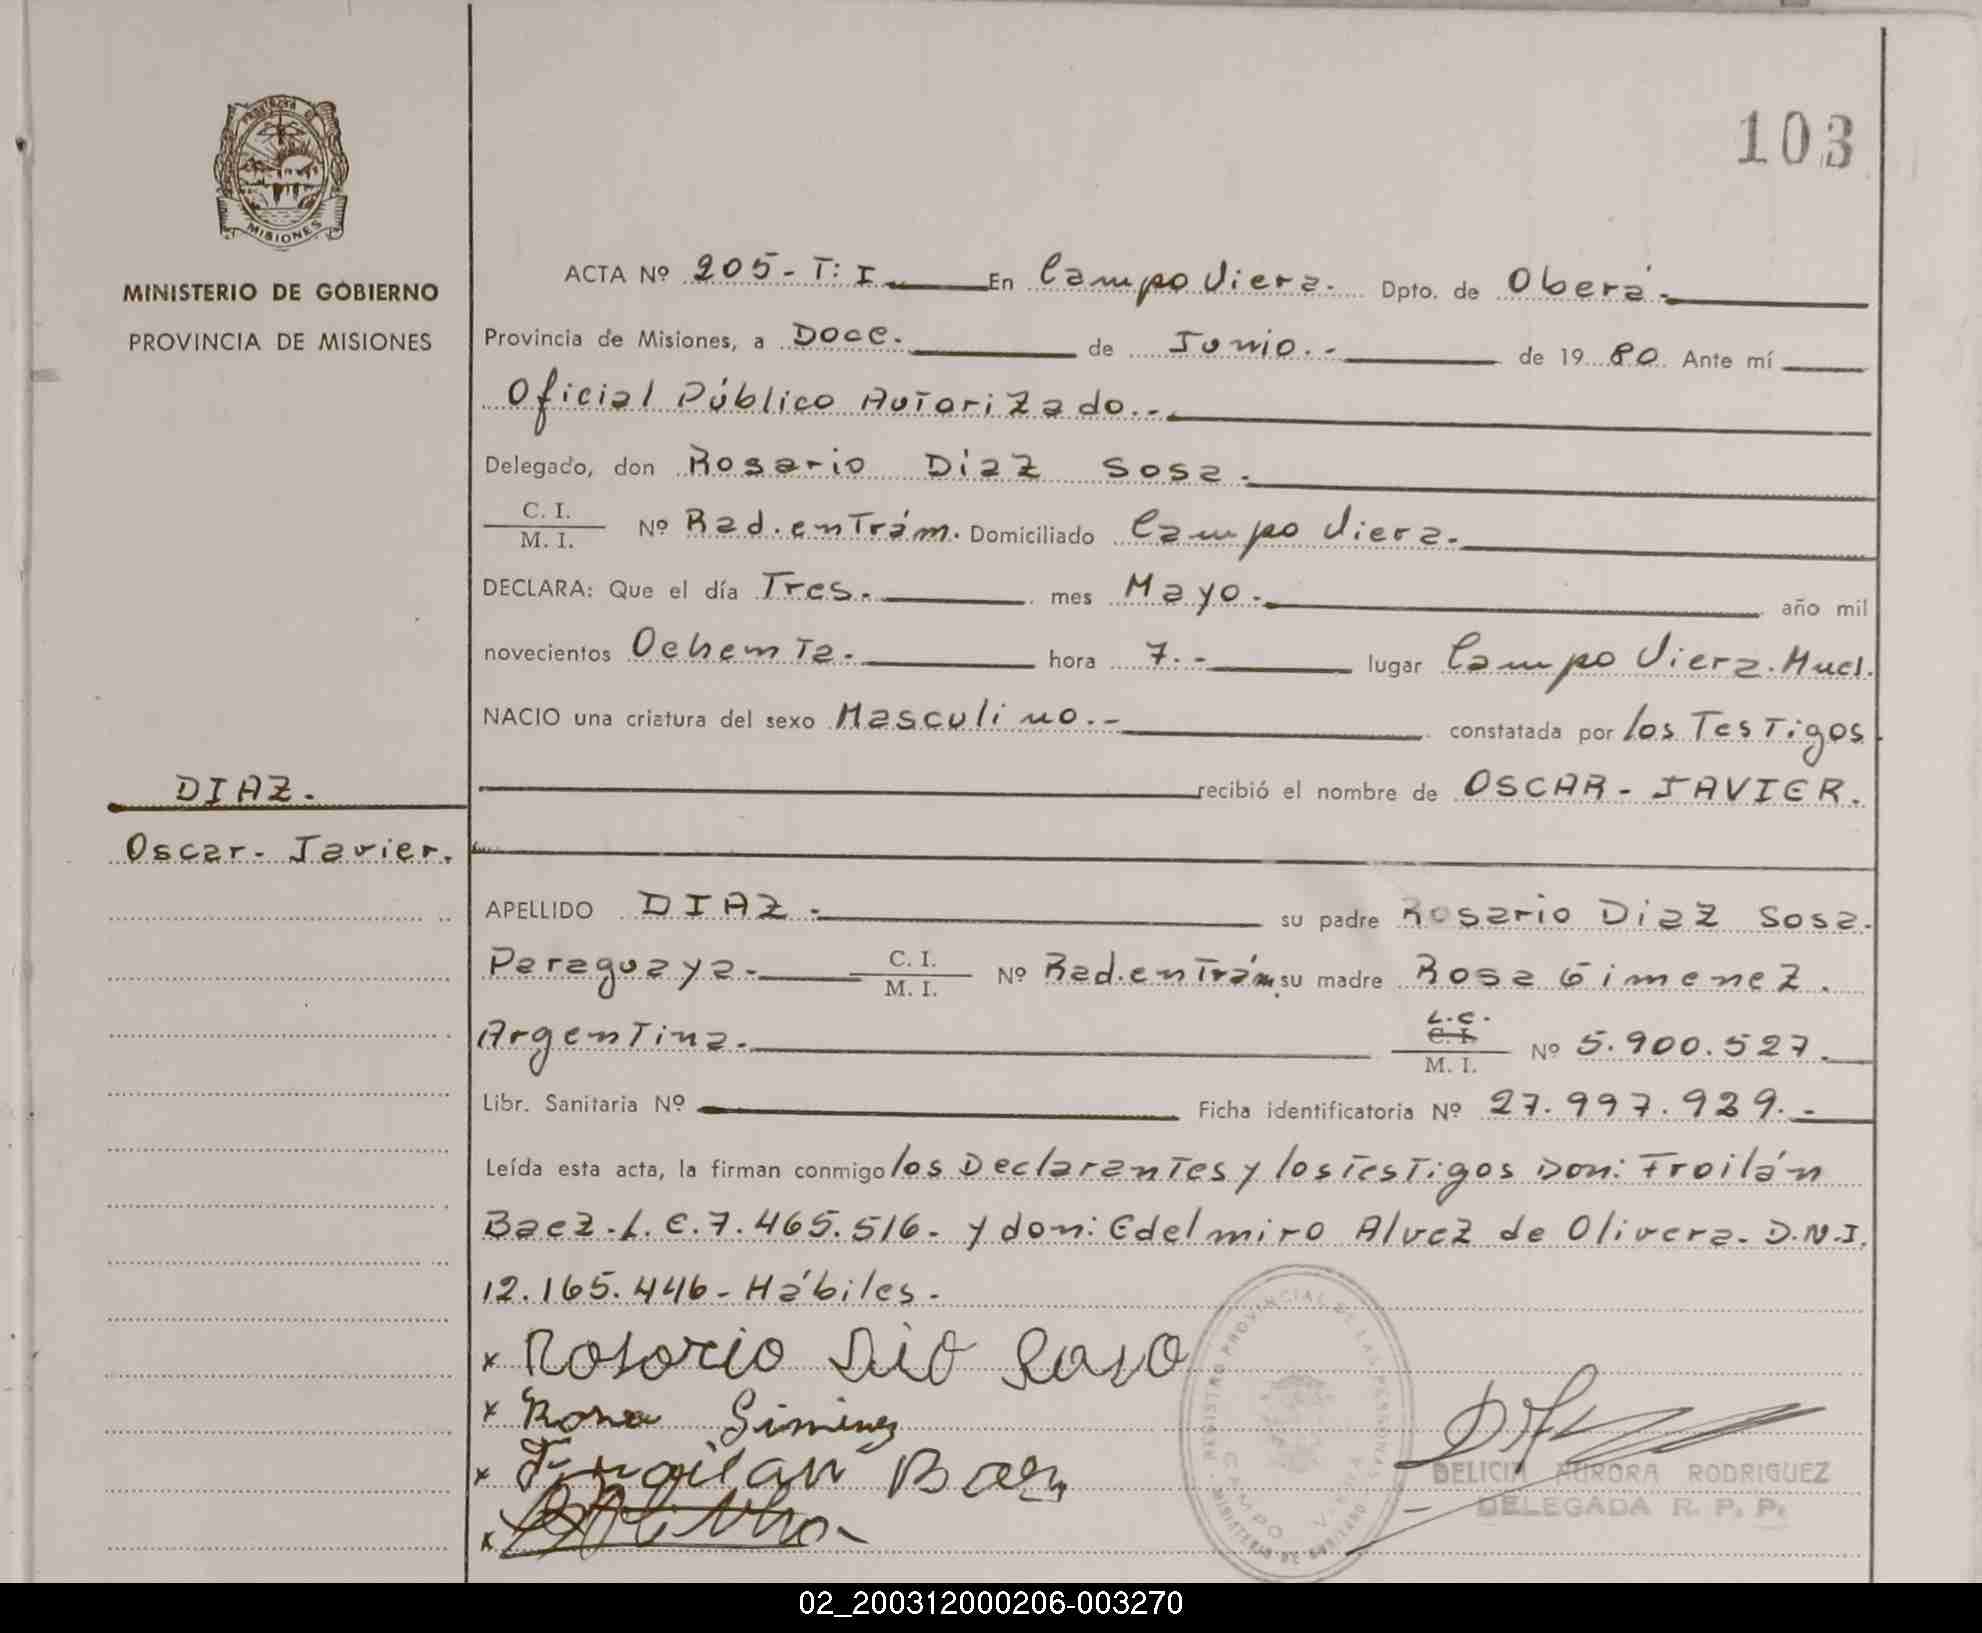 103
PROVINCIA DE
MISIONES
MINISTERIO DE GOBIERNO
PROVINCIA DE MISIONES
ACTA Nº 205 - T: I. En Campo Viera. Dpto. de Oberá.-
Provincia de Misiones, a Doce. de Junio.- de 1980. Ante mí
Oficial Público Autorizado.-
Delegado, don Rosario Diaz Sosa.
C. I.
M. I. Nº Rad. en Trám. Domiciliado Campo Viera.
DECLARA: Que el día Tres. mes Mayo. año mil
novecientos Ochenta. hora 7.- lugar Campo Viera. Mucl.
NACIO una criatura del sexo Masculino.- constatada por los Testigos
recibió el nombre de OSCAR - JAVIER.
DIAZ.
Oscar - Javier.
APELLIDO DIAZ. su padre Rosario Diaz Sosa.
Paraguaya. C. I.
M. I. Nº Rad. en Trám. su madre Rosa Gimenez.
Argentina. L.C.
C. I.
M. I. Nº 5.900.527.
Libr. Sanitaria Nº Ficha identificatoria Nº 27.997.939.-
Leída esta acta, la firman conmigo los Declarantes y los Testigos Don: Froilán
Baez - L. E. 7.465.516 - y don: Edelmiro Alvez de Olivera - D.N.I.
12.165.446 - Hábiles.
x Rosario Dia Saso
x Rosa Giminez
x Froilan Baez
x
REGISTRO PROVINCIAL DE LAS PERSONAS
CAMPO VIERA
MINISTERIO DE GOBIERNO
DELICIA AURORA RODRIGUEZ
DELEGADA R. P. P.
02_200312000206-003270